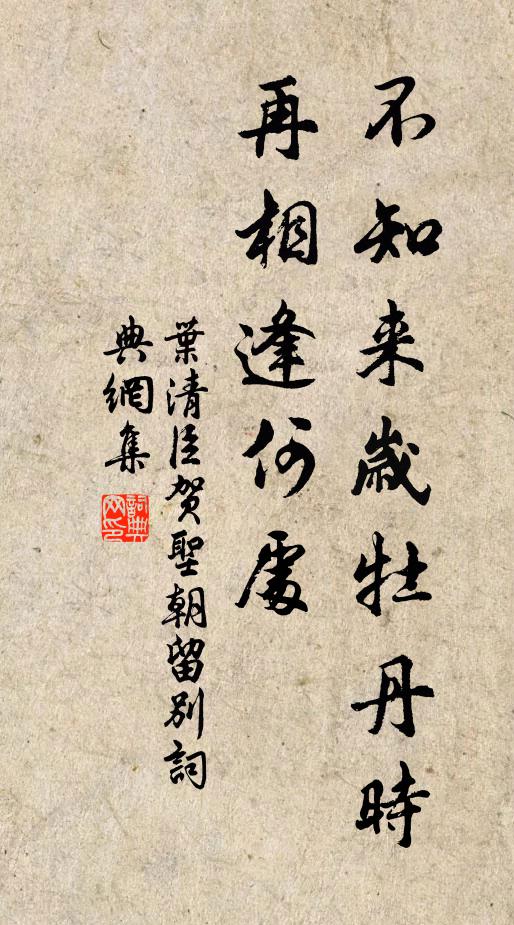 不知来歲牡丹時
再相逢何處
葉清臣賀聖朝留別詞
典網集
詞典網印